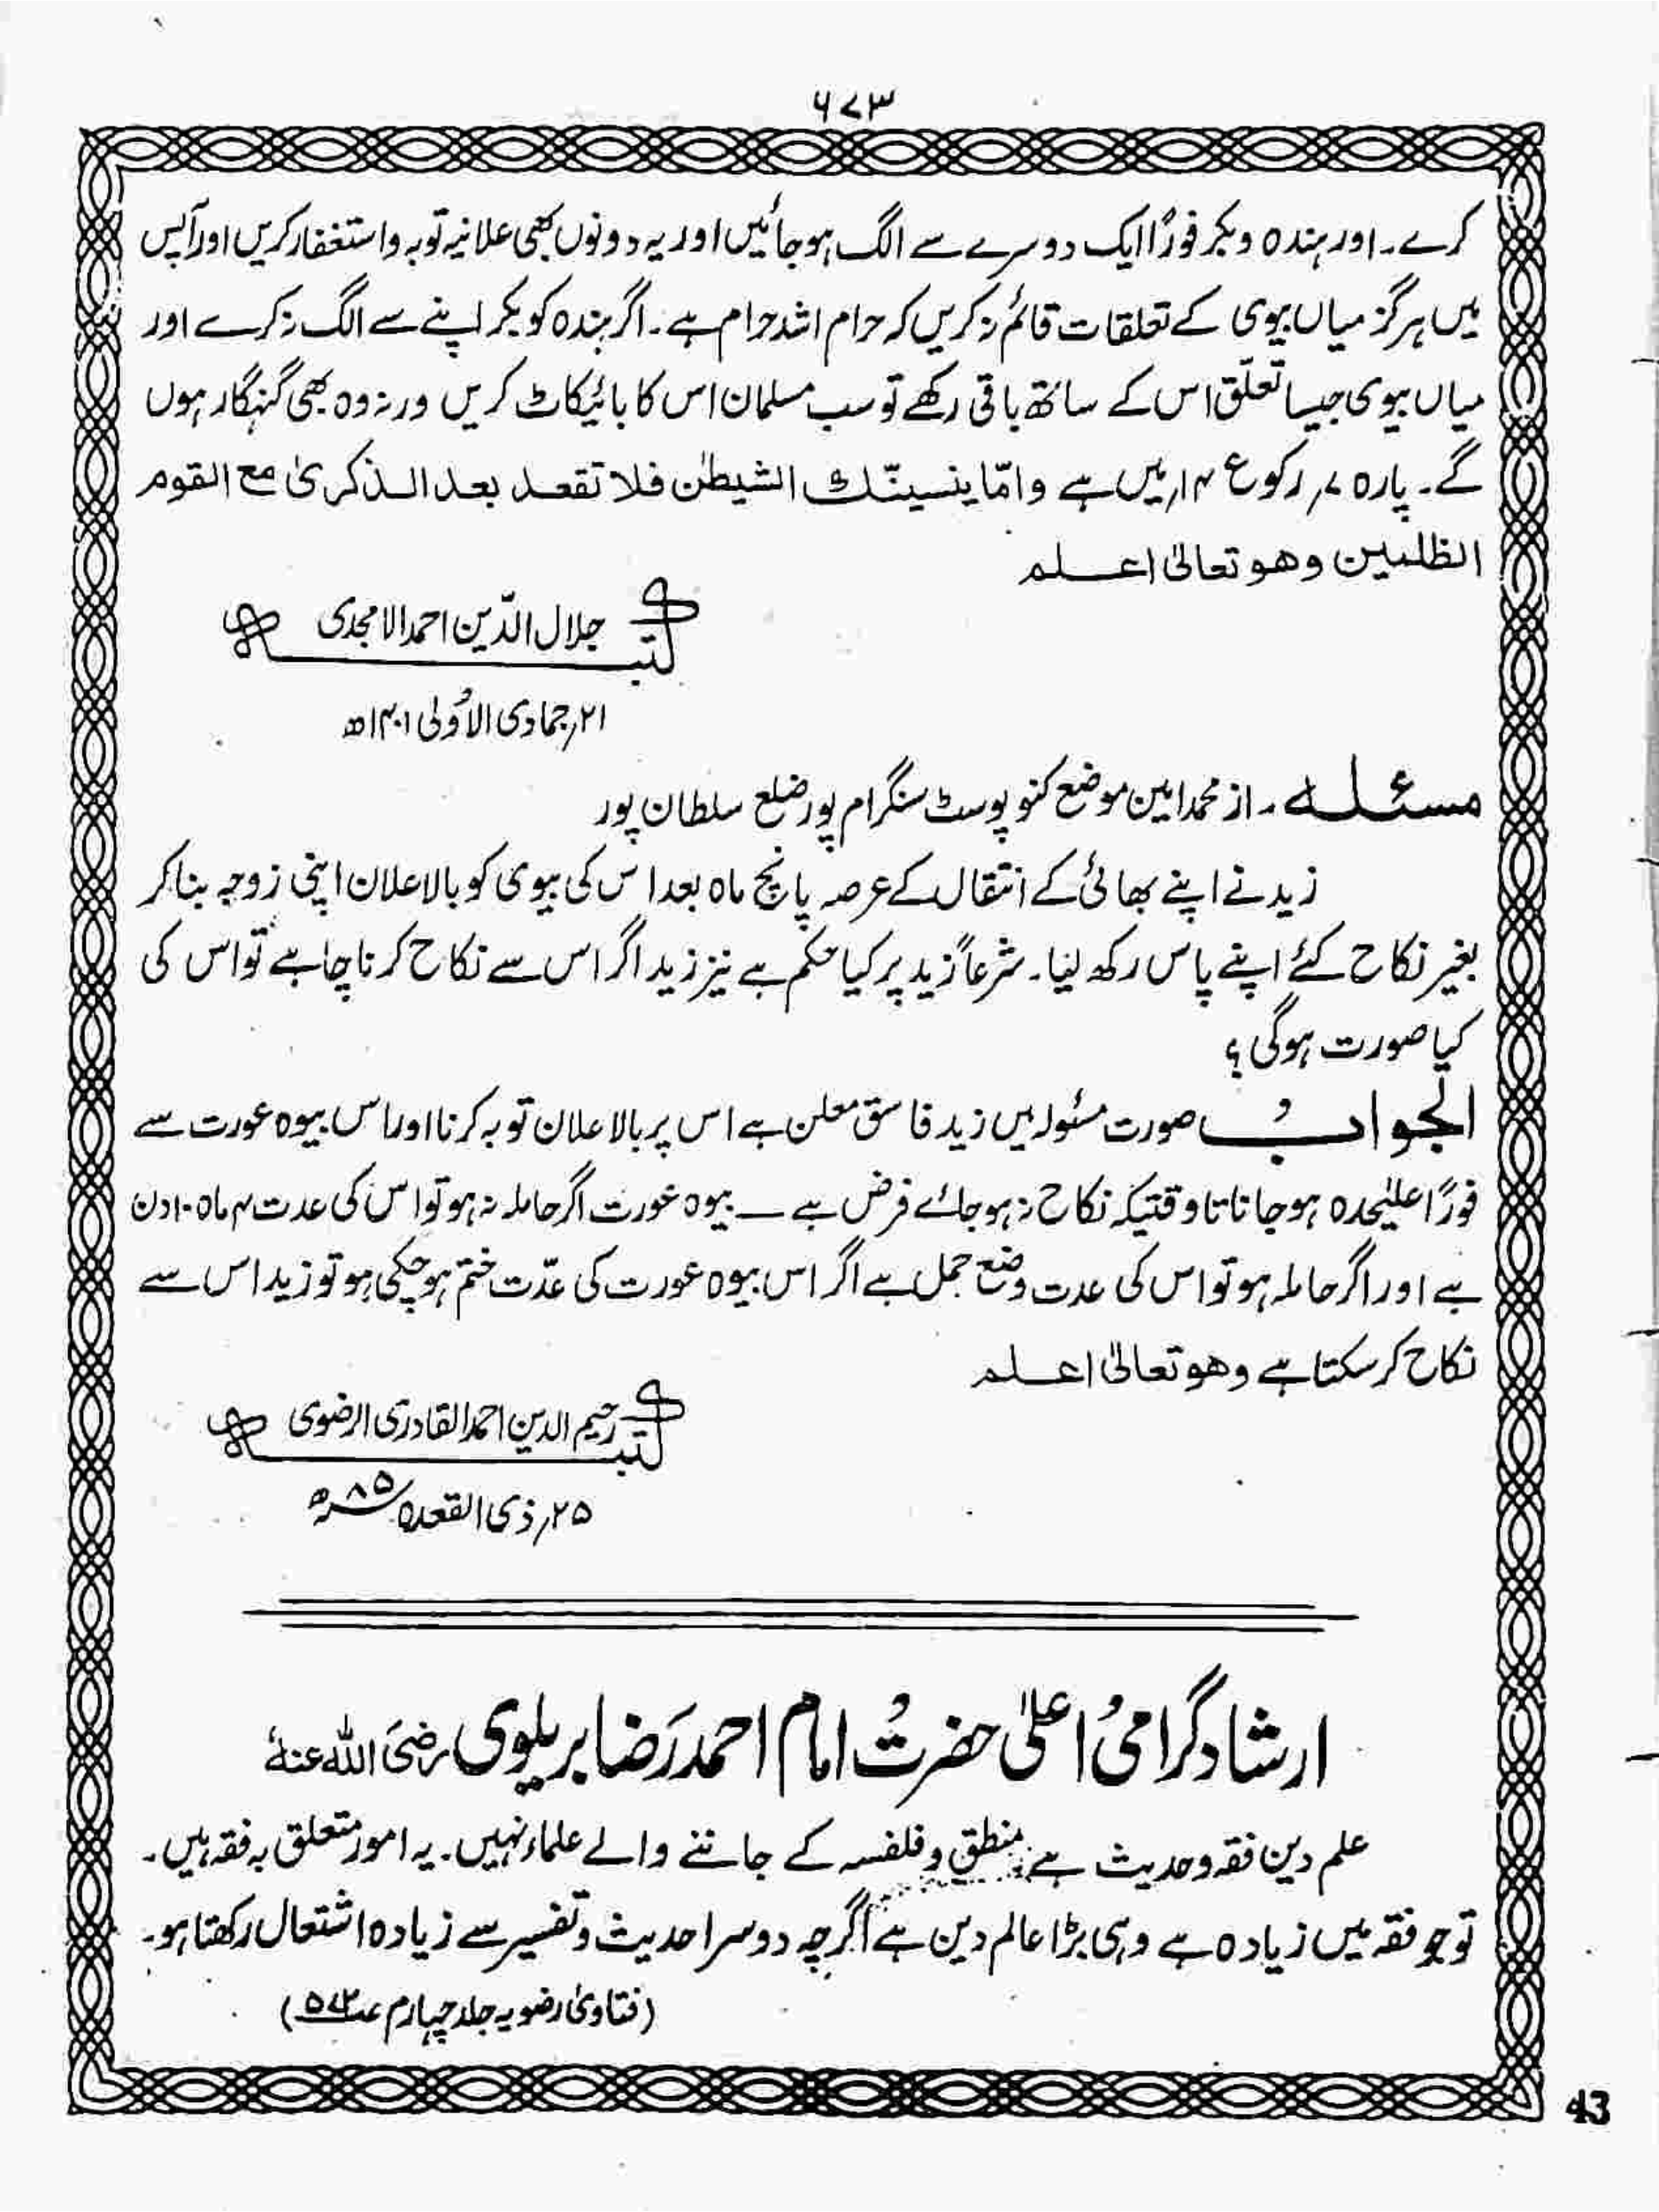 ۶۷۳
کرے۔ اور ہندہ و بکر فورًا ایک دوسرے سے الگ ہو جائیں اور یہ دونوں بھی علانیہ توبہ و استغفار کریں اور آپس
میں ہرگز میاں بیوی کے تعلقات قائم نہ کریں کہ حرام اشد حرام ہے۔ اگر ہندہ کو بکر اپنے سے الگ نہ کرے اور
میاں بیوی جیسا تعلّق اس کے ساتھ باقی رکھے تو سب مسلمان اس کا بائیکاٹ کریں ورنہ وہ بھی گنہگار ہوں
گے۔ پارہ ۷؍ رکوع ۱۴؍ میں ہے و امّا ینسینّك الشیطٰن فلا تقعد بعد الذکریٰ مع القوم
الظٰلمین وھو تعالیٰ اعلم
کتبہ جلال الدّین احمد الامجدی
۲۱؍ جمادی الاُولیٰ ۱۴۰۱ھ
مسئلہ۔ از محمد امین موضع کنو پوسٹ سنگرام پور ضلع سلطان پور
زید نے اپنے بھائی کے انتقال کے عرصہ پانچ ماہ بعد اس کی بیوی کو بالاعلان اپنی زوجہ بنا کر
بغیر نکاح کئے اپنے پاس رکھ لیا۔ شرعاً زید پر کیا حکم ہے نیز زید اگر اس سے نکاح کرنا چاہے تو اس کی
کیا صورت ہوگی؟
الجوابُ صورت مسئولہ میں زید فاسق معلن ہے اس پر بالاعلان توبہ کرنا اور اس بیوہ عورت سے
فورًا علیٰحدہ ہو جانا تا وقتیکہ نکاح نہ ہو جائے فرض ہے — بیوہ عورت اگر حاملہ نہ ہو تو اس کی عدت ۴ ماہ ۱۰ دن
ہے اور اگر حاملہ ہو تو اس کی عدت وضع حمل ہے اگر اس بیوہ عورت کی عدّت ختم ہو چکی ہو تو زید اس سے
نکاح کر سکتا ہے وھو تعالیٰ اعلم
کتبہ رحیم الدین احمد القادری الرضوی
۲۵؍ ذی القعدہ ۸۵ھ
ارشاد گرامیُ اعلیٰ حضرتُ امام احمد رَضا بریلوی رضیَ اللہ عنہُ
علم دین فقہ و حدیث ہے منطق و فلسفہ کے جاننے والے علماء نہیں۔ یہ امور متعلق بہ فقہ ہیں۔
تو جو فقہ میں زیادہ ہے وہی بڑا عالم دین ہے اگرچہ دوسرا حدیث و تفسیر سے زیادہ اشتعال رکھتا ہو۔
(فتاویٰ رضویہ جلد چہارم ص۵۷۲)
43